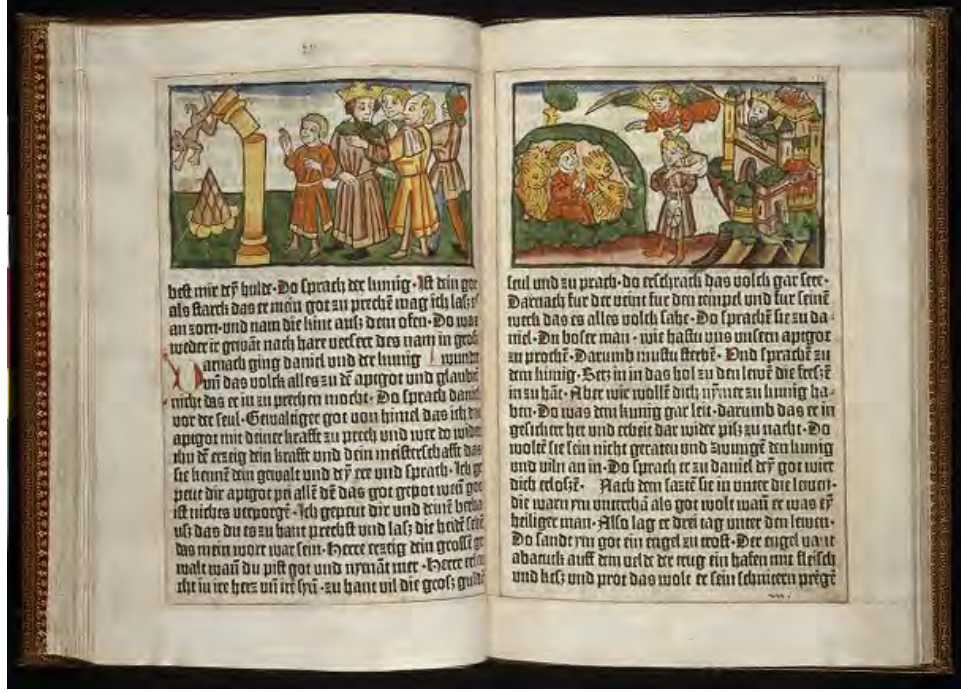 hest mir deӱ hulde · Do sprach der kunig · Ist dein got
als starck das er mein got zu prechē mag ich las
an zorn · vnd nam die kint aus dem ofen · Do was
weder ir gewāt nach hare verseret des nam in gros
Darnach ging daniel vnd der kunig wundr
vn̄ das volck alles zu dē apgot vnd glaubtē
nicht das er in prechen mocht · Do sprach daniel
vor der seul · Gewaltiger got von himel das ich dē
apgot mit deiner krafft zu prech vnd wer do wider
thu dē erzeig dein krafft vnd dein meisterschafft das
sie kennē dein gewalt vnd deӱ ere vnd sprach · Ich ge
peut dir apgot pei allē dē das got gepot wen̄ got
ist nichcs verporgē · Ich gepeut dir vnd deinē
das du es zu hant prechst vnd las die heidē sehē
das mein wort war sein · Herre erzeig dein grosse ge
walt wan̄ du pist got vnd nӱmāt mer · Herre
icht in ire herz vn̄ ire sӱn · zu hant vil die gros
seul vnd zu prach · do erschrack das volck gar sere ·
Darnach fur der veint fur den tempel vnd fur seinē
weck das es alles volck sahe · Do sprachē sie zu da
niel · Du boser man · wie hastu vns vnsern apgot
zu prochē · Darumb mustu sterbē · Vnd sprachē zu
dem kunig · Setz in in das hol zu den lewē die fressē
in zu hāt · Aber wir wollē dich nӱmer zu kunig ha
ben · Do was dem kunig gar leit · darumb das er in
gesichert het vnd erbeit dar wider pis zu nacht · Do
wolte sie sein nicht geraten vnd zwungē den kunig
vnd viln an in · Do sprach er zu daniel deӱ got wirt
dich erlosē · Nach dem saztē sie in vnter die lewen ·
die warn ӱm vntertā als got wolt wan̄ er was eӱ
heiliger man · Also lag er drei tag vnter den lewen ·
Do sandt ӱm got ein engel zu trost · Der engel vant
abacuck auff dem velde der trug ein hafen mit fleisch
vnd kes vnd prot das wolt er sein schnitern prēgē